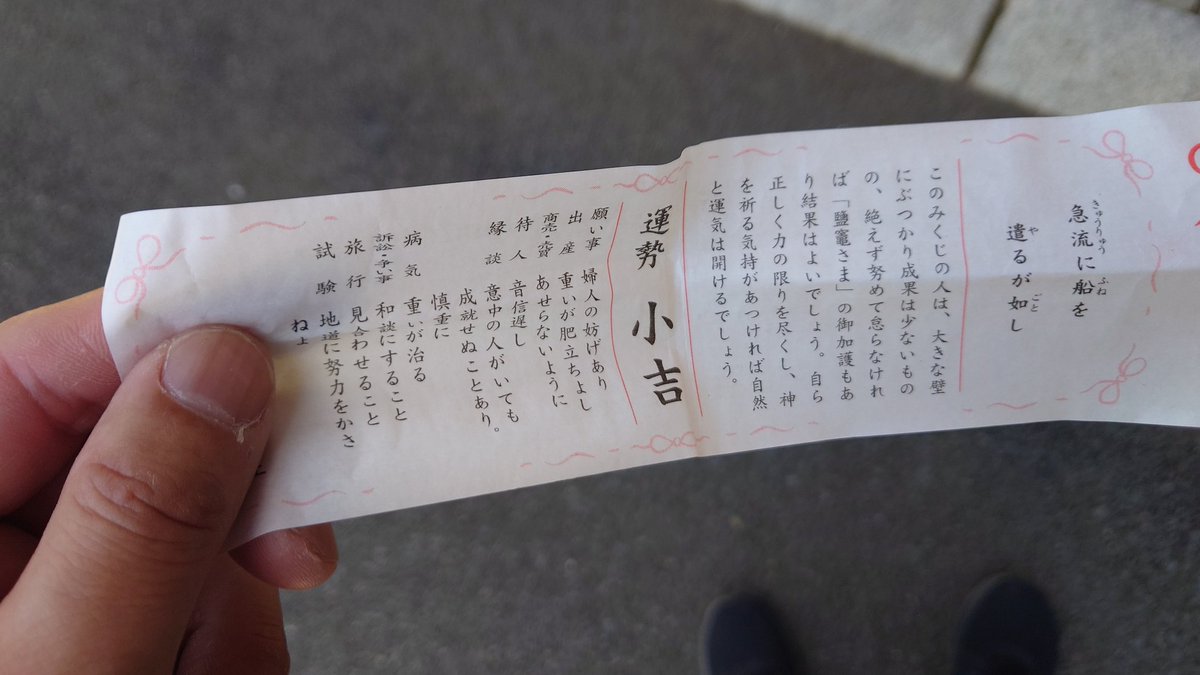 急流に船を
遣るが如し
このみくじの人は、大きな壁
にぶつかり成果は少ないもの
の、絶えず努めて怠らなけれ
ば「鹽竈さま」の御加護もあ
り結果はよいでしょう。自ら
正しく力の限りを尽くし、神
を祈る気持があつければ自然
と運気は開けるでしょう。
運勢 小吉
願い事 婦人の妨げあり
出産 重いが肥立ちよし
商売・売買 あせらないように
待人 音信遅し
縁談 意中の人がいても
成就せぬことあり。
慎重に
病気 重いが治る
訴訟・争い事 和談にすること
旅行 見合わせること
試験 地道に努力をかさ
ねよ